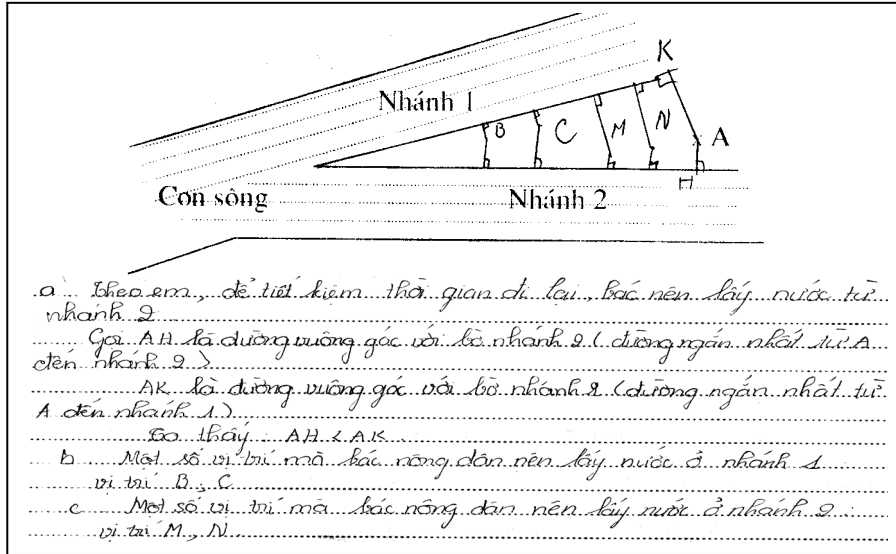 K
Nhánh 1
B
C
M
N
A
H
Con sông
Nhánh 2
a Theo em, để tiết kiệm thời gian đi lại, bác nên lấy nước từ
nhánh 2
Gọi AH là đường vuông góc với bờ nhánh 2 (đường ngắn nhất từ A
đến nhánh 2)
AK là đường vuông góc với bờ nhánh 1 (đường ngắn nhất từ
A đến nhánh 1)
Đo thấy: AH < AK
b Một số vị trí mà bác nông dân nên lấy nước ở nhánh 1
vị trí B, C
c Một số vị trí mà bác nông dân nên lấy nước ở nhánh 2
vị trí M, N